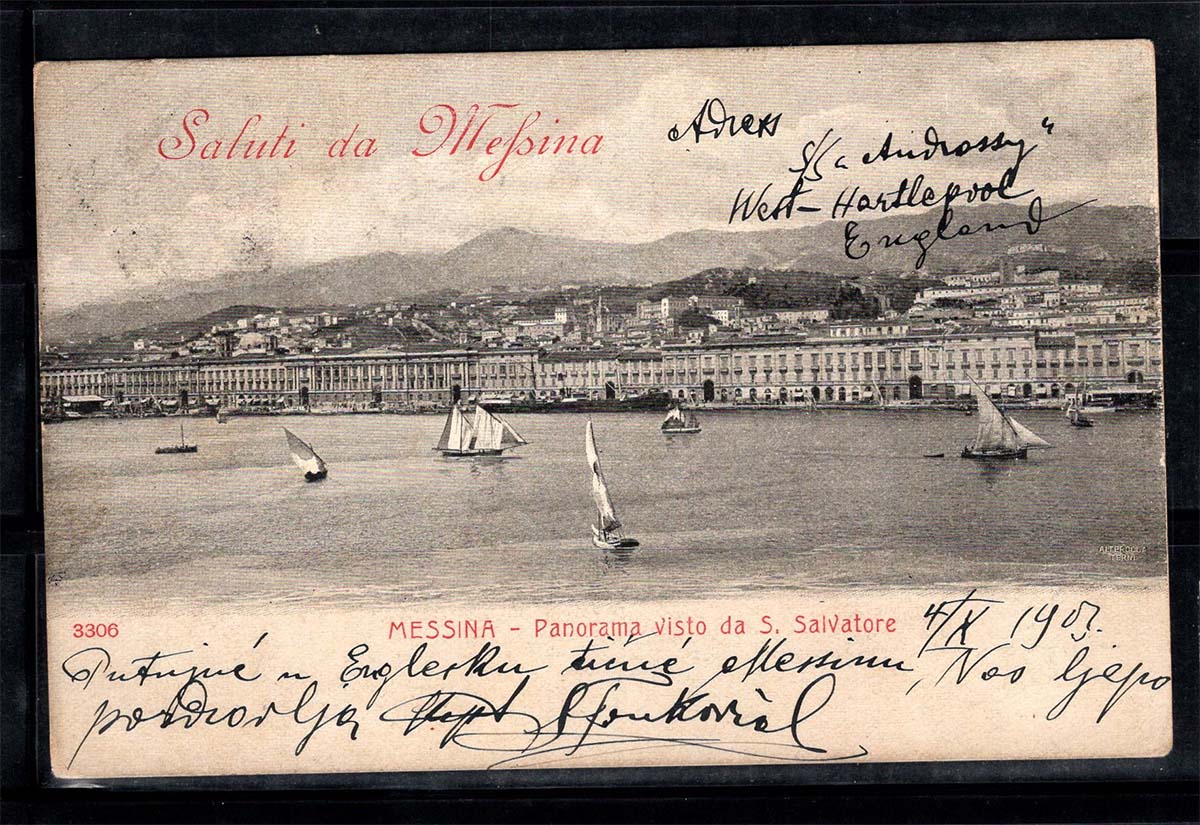 Saluti da Messina
Adress
S/S „Androssy“
West-Hartlepool
England
ALTEROCCA
TERNI
3306
MESSINA – Panorama visto da S. Salvatore
4/X 190
Putujuć u Englesku tičuć Messinu, Vas ljepo
pozdravlja